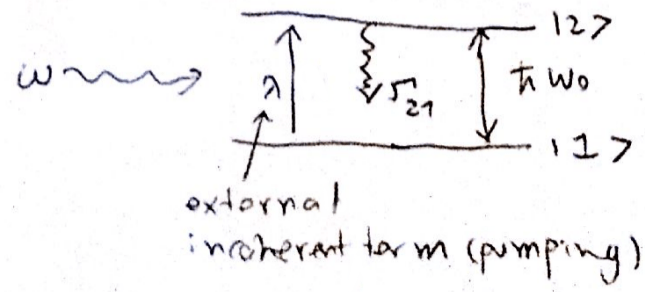 |2>
ω
λ
Γ21
ħ ω0
|1>
external
incoherent term (pumping)